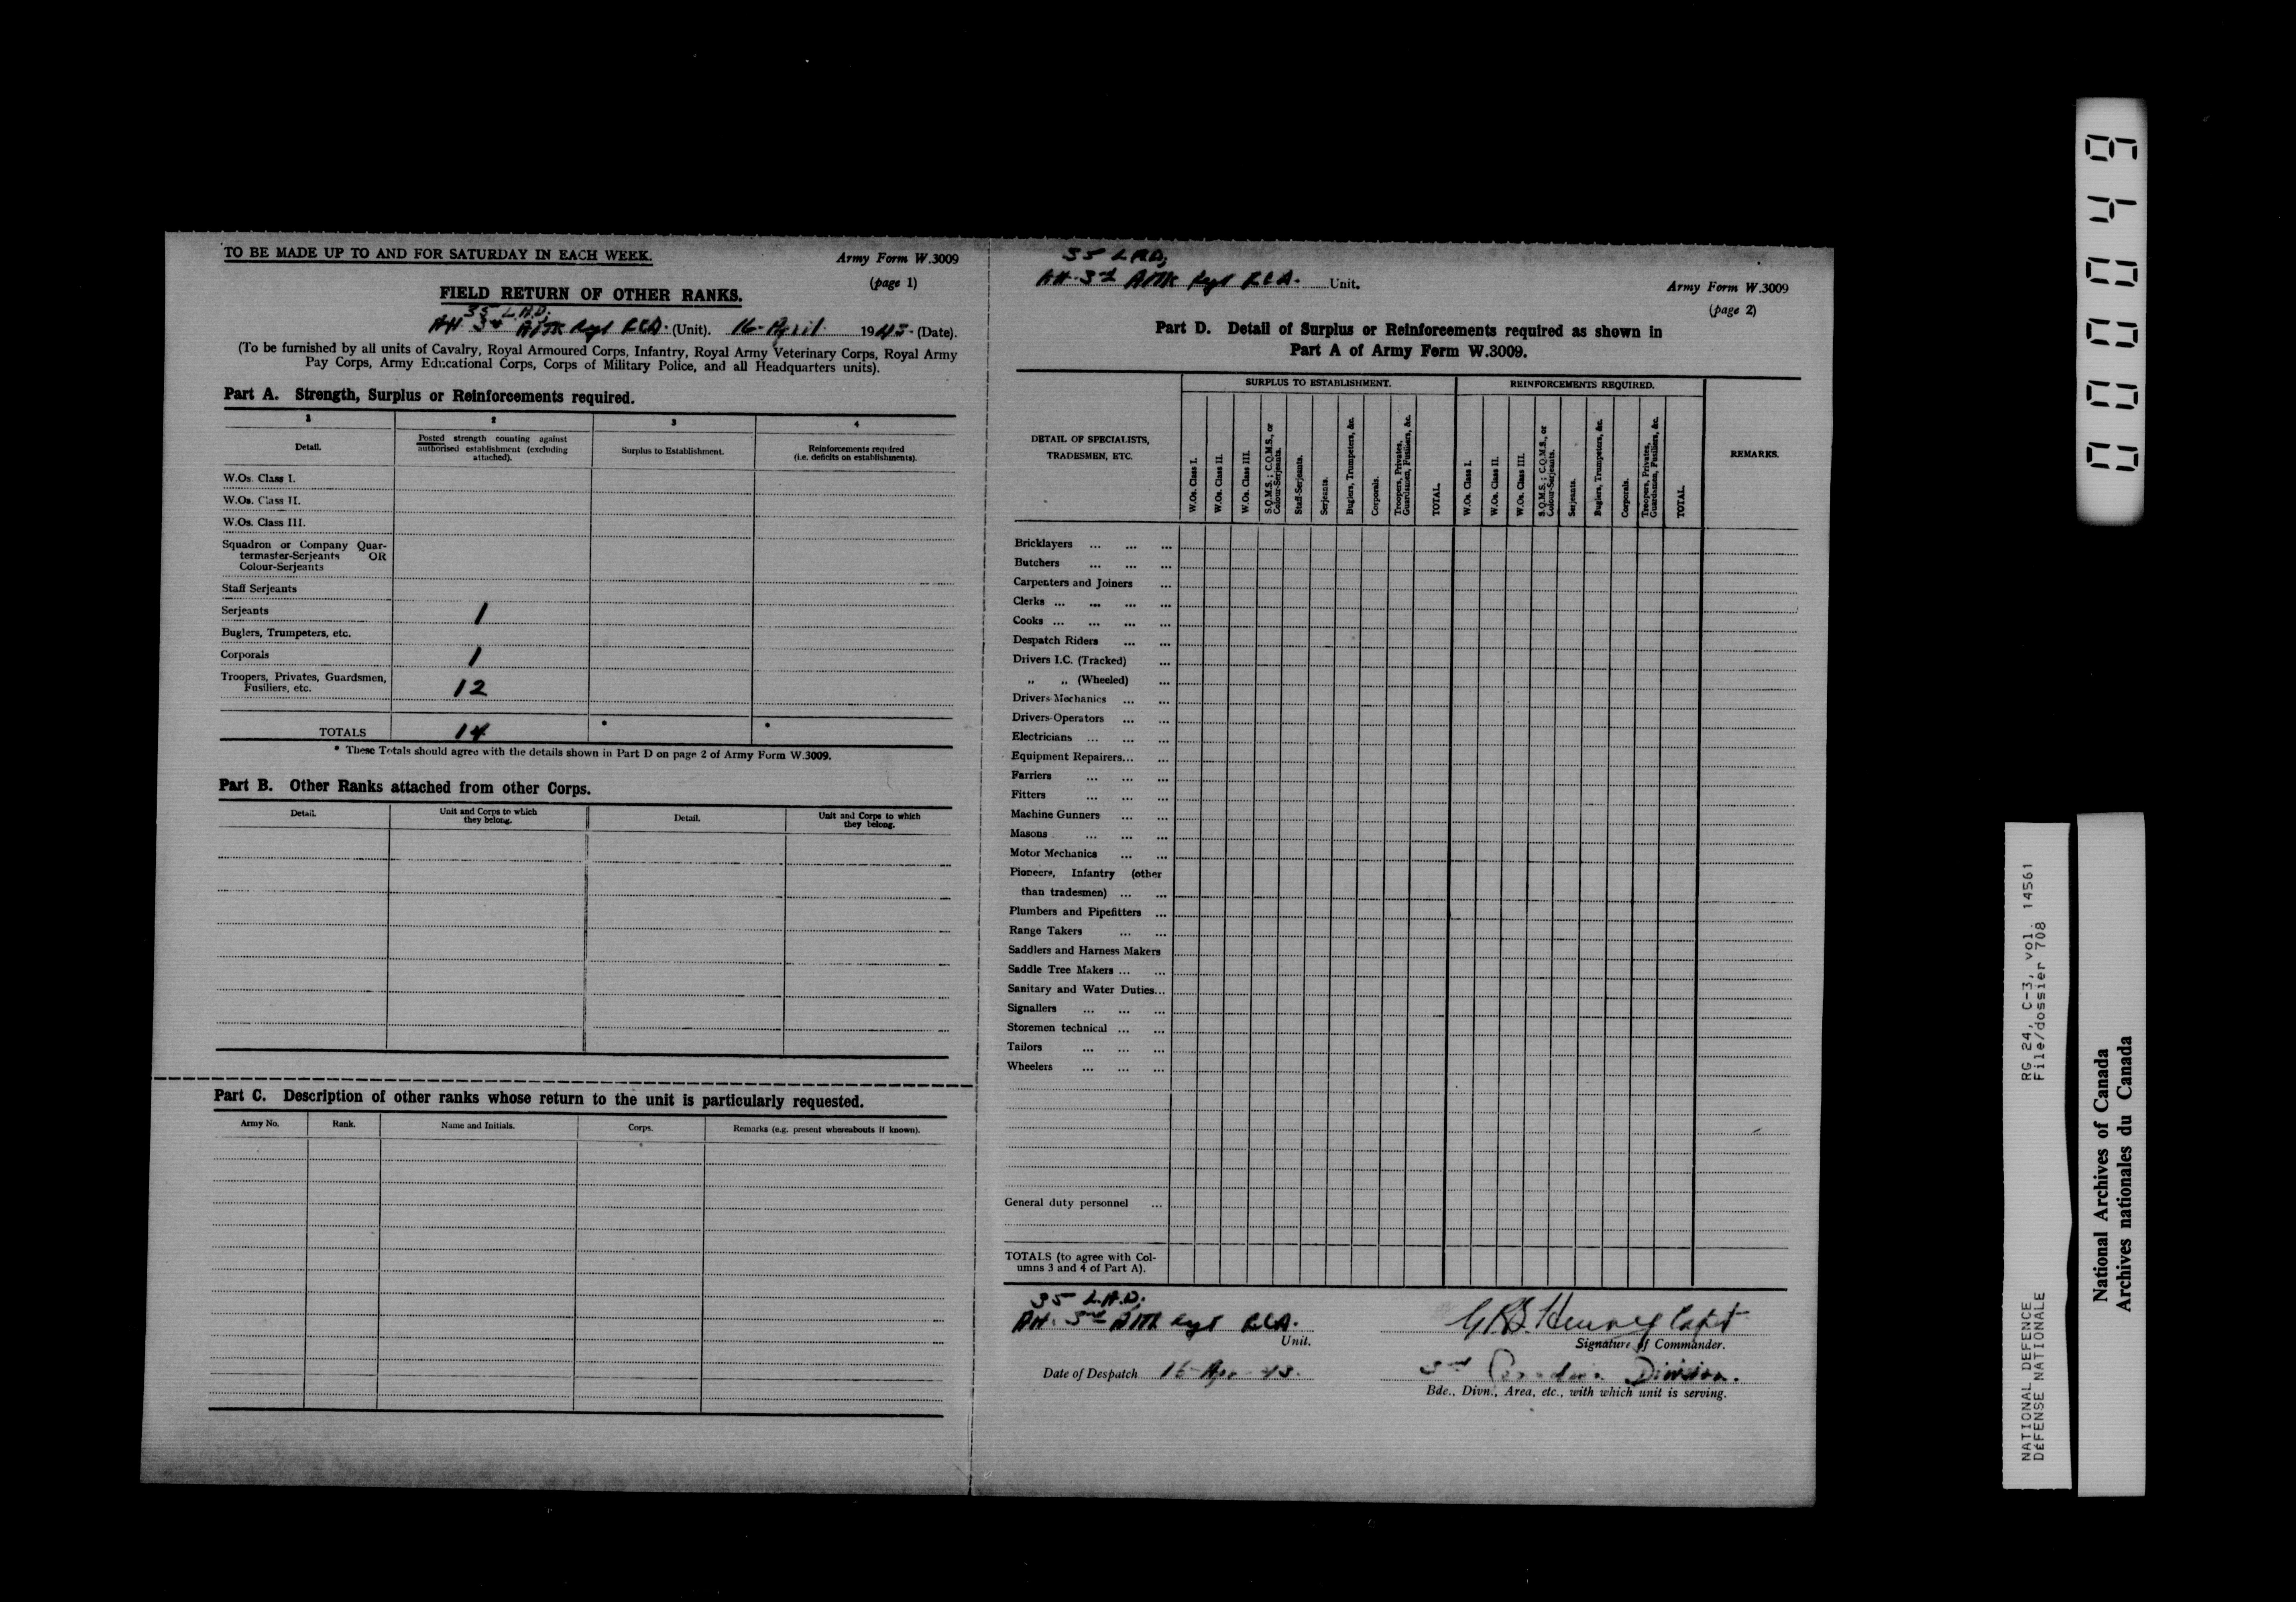 TO BE MADE UP TO AND FOR SATURDAY IN EACH WEEK.
Army Form W.3009
(page 1)
FIELD RETURN OF OTHER RANKS.
35 L.A.D.
3rd Regt RCA. (Unit). 16 April 1943 (Date).
(To be furnished by all units of Cavalry, Royal Armoured Corps, Infantry, Royal Army Veterinary Corps, Royal Army
Pay Corps, Army Educational Corps, Corps of Military Police, and all Headquarters units).
Part A. Strength, Surplus or Reinforcements required.
1 2 3 4
Detail.
Posted strength counting against
authorised establishment (excluding
attached).
Surplus to Establishment.
Reinforcements required
(i.e. deficits on establishments).
W.Os. Class I.
W.Os. Class II.
W.Os. Class III.
Squadron or Company Quar-
termaster-Serjeants OR
Colour-Serjeants
Staff Serjeants
Serjeants 1
Buglers, Trumpeters, etc.
Corporals 1
Troopers, Privates, Guardsmen,
Fusiliers, etc. 12
TOTALS 14 * *
* These Totals should agree with the details shown in Part D on page 2 of Army Form W.3009.
Part B. Other Ranks attached from other Corps.
Detail.
Unit and Corps to which
they belong.
Detail.
Unit and Corps to which
they belong.
Part C. Description of other ranks whose return to the unit is particularly requested.
Army No. Rank. Name and Initials. Corps. Remarks (e.g. present whereabouts if known).
35 L.A.D.
3rd Regt RCA. Unit.
Army Form W.3009
(page 2)
Part D. Detail of Surplus or Reinforcements required as shown in
Part A of Army Form W.3009.
DETAIL OF SPECIALISTS,
TRADESMEN, ETC.
SURPLUS TO ESTABLISHMENT.
W.Os. Class I.
W.Os. Class II.
W.Os. Class III.
S.Q.M.S.; C.Q.M.S., or
Colour-Serjeants.
Staff-Serjeants.
Serjeants.
Buglers, Trumpeters, &c.
Corporals.
Troopers, Privates,
Guardsmen, Fusiliers, &c.
TOTAL.
REINFORCEMENTS REQUIRED.
W.Os. Class I.
W.Os. Class II.
W.Os. Class III.
S.Q.M.S.; C.Q.M.S., or
Colour-Serjeants.
Serjeants.
Buglers, Trumpeters, &c.
Corporals.
Troopers, Privates,
Guardsmen, Fusiliers, &c.
TOTAL.
REMARKS.
Bricklayers ... ... ...
Butchers ... ... ...
Carpenters and Joiners ...
Clerks ... ... ... ...
Cooks ... ... ... ...
Despatch Riders ... ...
Drivers I.C. (Tracked) ...
„ „ (Wheeled) ...
Drivers-Mechanics ... ...
Drivers-Operators ... ...
Electricians ... ... ...
Equipment Repairers... ...
Farriers ... ... ...
Fitters ... ... ...
Machine Gunners ... ...
Masons ... ... ...
Motor Mechanics ... ...
Pioneers, Infantry (other
than tradesmen) ... ...
Plumbers and Pipefitters ...
Range Takers ... ...
Saddlers and Harness Makers
Saddle Tree Makers ... ...
Sanitary and Water Duties...
Signallers ... ... ...
Storemen technical ... ...
Tailors ... ... ...
Wheelers ... ... ...
General duty personnel ...
TOTALS (to agree with Col-
umns 3 and 4 of Part A).
35 L.A.D.
3rd Regt RCA.
Unit.
Henney Capt
Signature of Commander.
Date of Despatch 16 Apr 43.
3rd Canadian Division.
Bde., Divn., Area, etc., with which unit is serving.
NATIONAL DEFENCE RG 24, C-3, vol. 14561
DéFENSE NATIONALE File/dossier 708
National Archives of Canada
Archives nationales du Canada